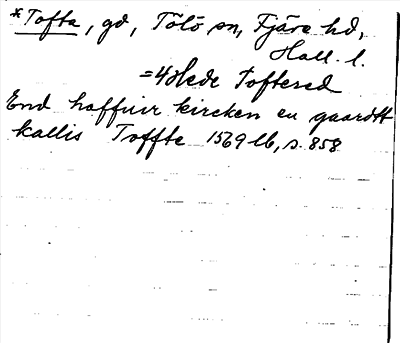 *Tofta, gd, Tölö sn, Fjäre hd,
Hall. l.
= Toftered
End haffuir kircken en gaardtt
kallis Toffte 1569 lb, s. 858